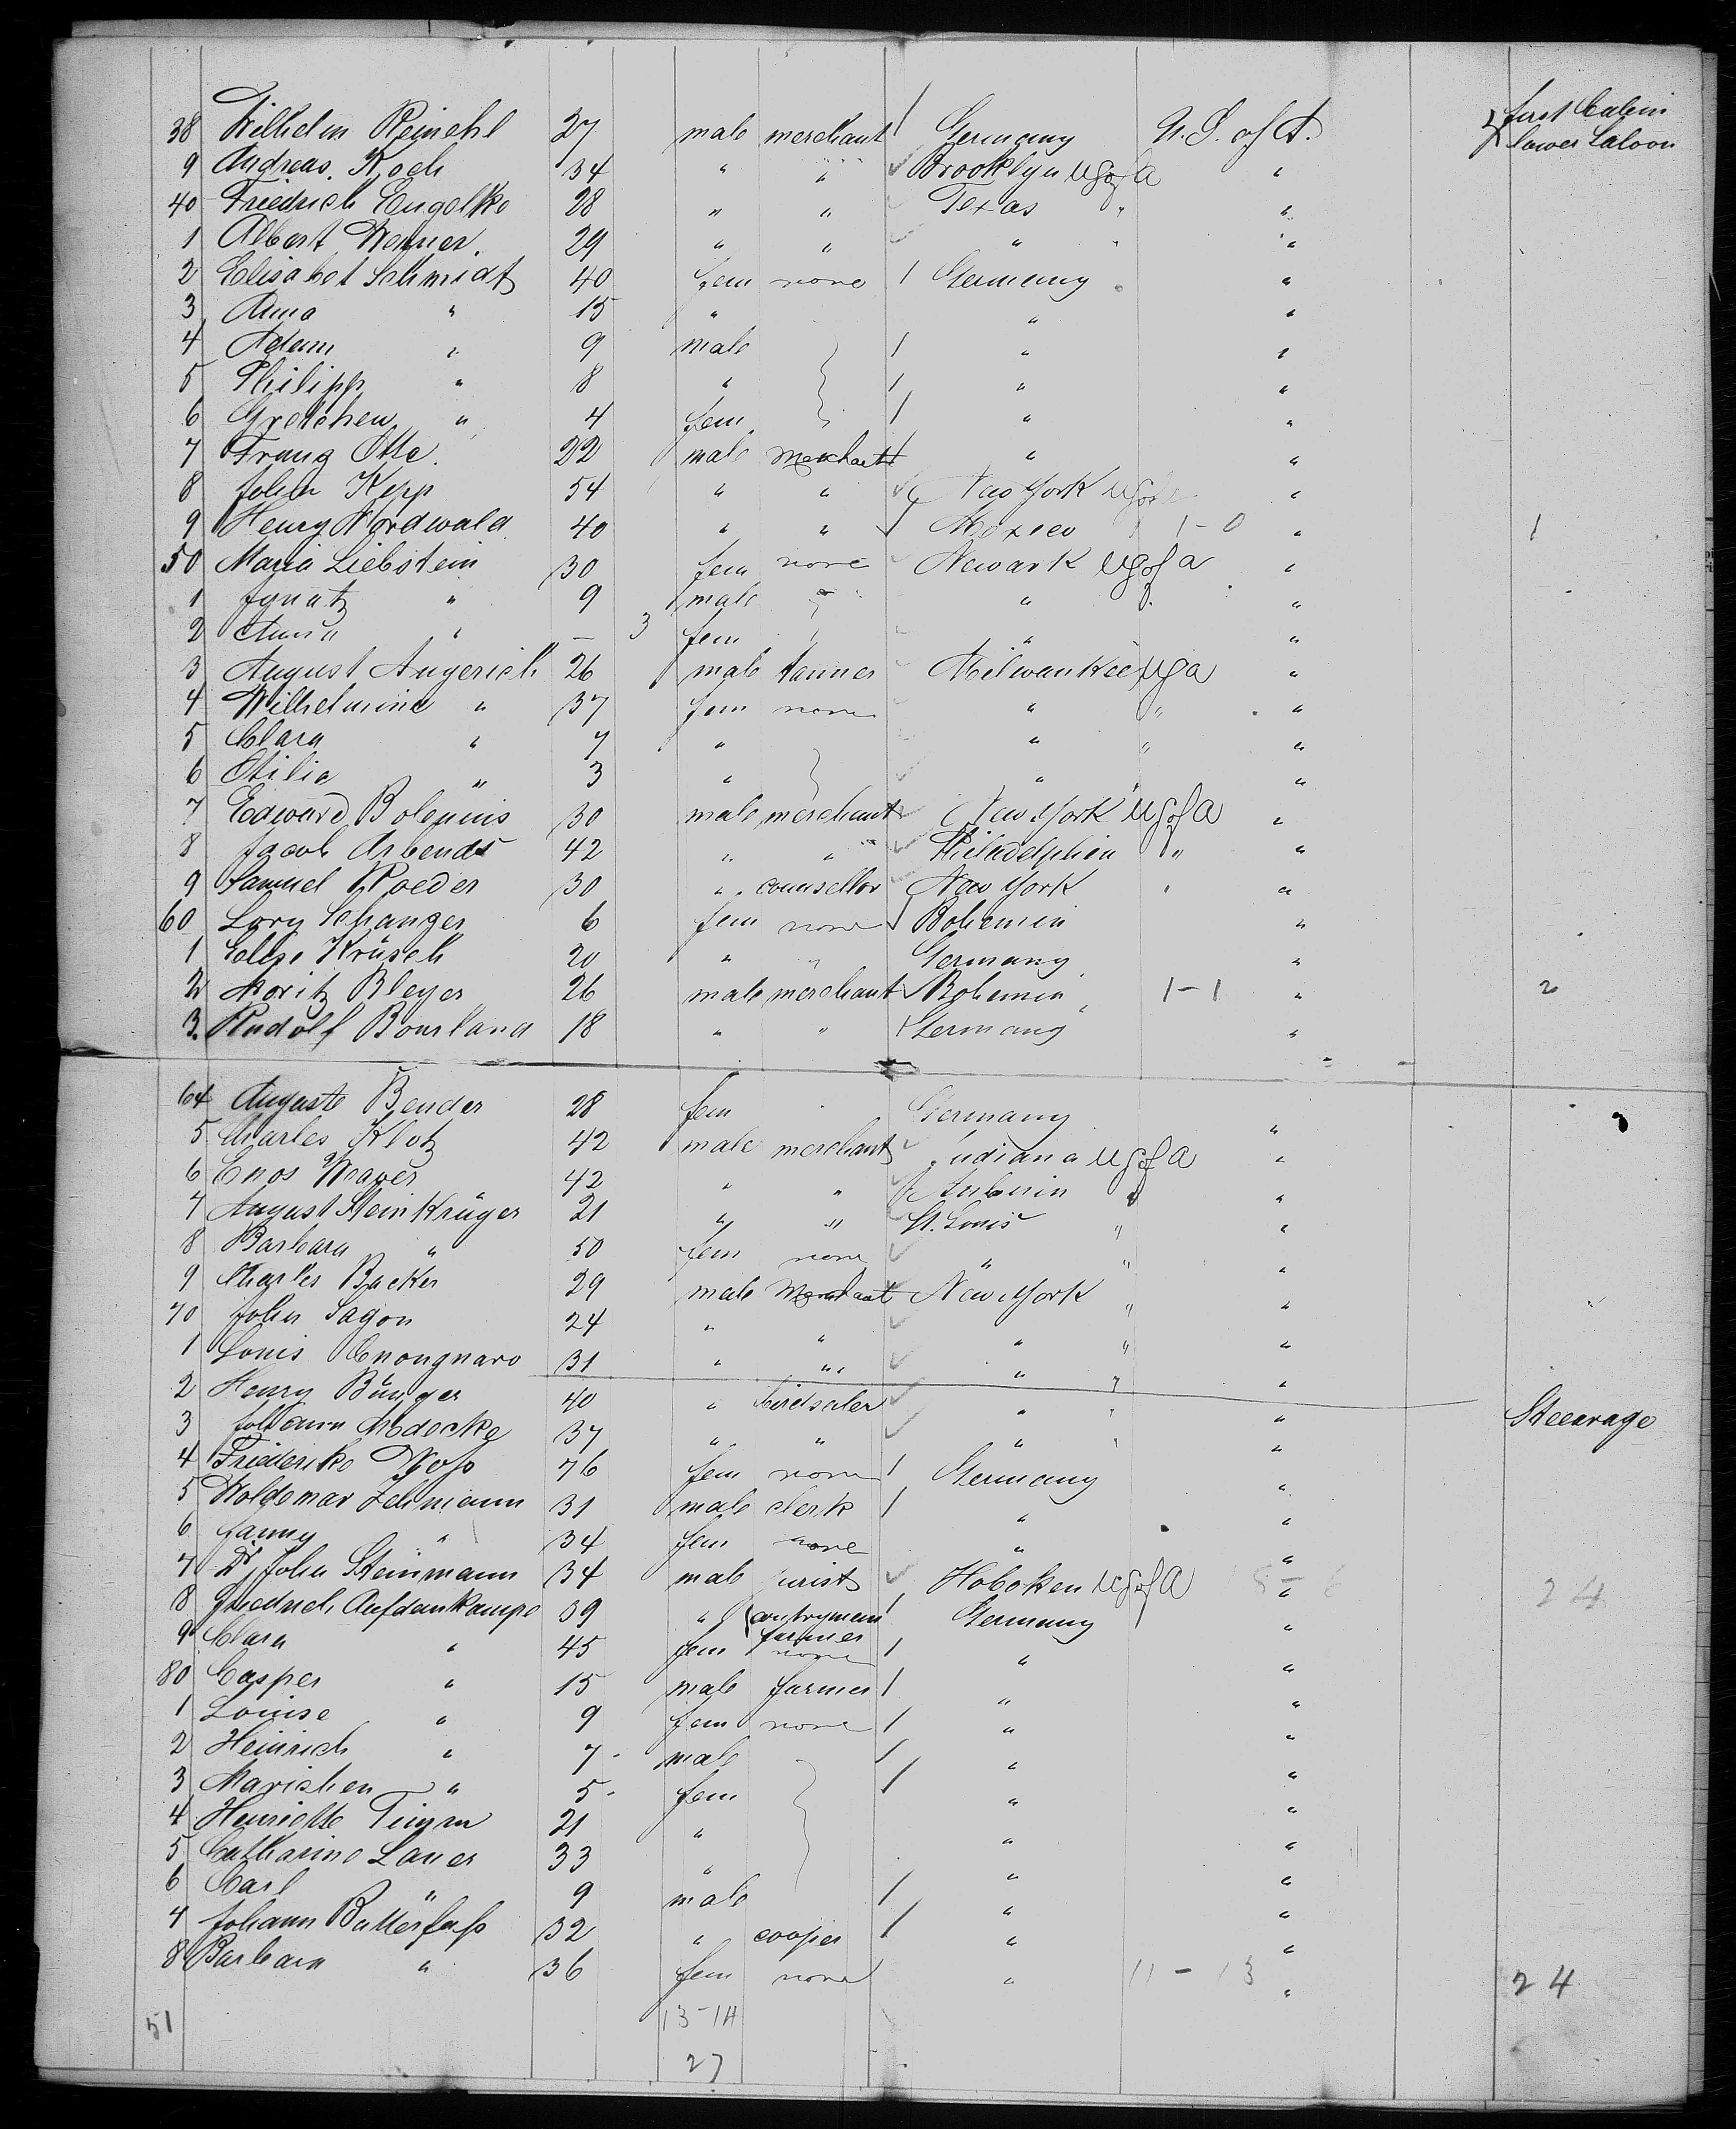 first Cabin
lower Saloon
38 Wilhelm Reinehl 27 male merchant Germany U.S. of A.
9 Andreas Koch 34 " " Brooklyn US of A "
40 Friedrich Engelke 28 " " Texas " "
1 Albert Werner 29 " " " " "
2 Elisabet Schmidt 40 fem none Germany "
3 Anna " 15 " " "
4 Adam " 9 male " "
5 Philipp " 8 " " "
6 Gretchen " 4 fem " "
7 Franz Otte 22 male merchant " "
8 John Kepp 54 " " New York US of "
9 Henry Nordwald 40 " " Mexico 1-0 " 1
50 Maria Liebstein 30 fem none Newark US of A "
1 Ignatz " 9 male " "
2 Anna " - 3 fem " "
3 August Angerich 26 male tanner Milwaukee USA "
4 Wilhelmine " 37 fem none " " "
5 Clara " 7 " " " "
6 Otilie " 3 " " " "
7 Edward Bolenius 30 male merchant New York US of A "
8 Jacob Arbends 42 " " Philadelphia " "
9 Samuel Roeder 30 " counsellor New York " "
60 Lory Schanzer 6 fem none Bohemia "
1 Elise Krüsch 20 " " Germany "
2 Moritz Bleyer 26 male merchant Bohemia 1-1 " 2
3. Rudolf Bourland 18 " " Germany "
64 Auguste Bender 28 fem Germany " 3
5 Charles Klotz 42 male merchant Indiana US of A "
6 Enos Weaver 42 " " " "
7 August Steinkrüger 21 " " St. Louis " "
8 Barbara " 50 fem none " " "
9 Charles Backer 29 male merchant New York " "
70 John Sagon 24 " " " " "
1 Louis 31 " " " " "
Steearage
2 Henry Bünger 40 " birdsaler " " "
3 Johann 37 " " " " "
4 Friederike Voss 76 fem none Germany "
5 Woldemar Zehmann 31 male clerk " "
6 Fanny " 34 fem none " "
7 Dr John Steinmann 34 male jurist Hoboken US of A " 24
8 Friedrich Aufdenkampe 39 " contrymen farmer Germany "
9 Clara " 45 fem none " "
80 Casper " 15 male farmer " "
1 Louise " 9 fem none " "
2 Heinrich " 7 male " "
3 Marichen " 5 fem " "
4 Henriette Timm 21 " " "
5 Catharine Lauer 33 " " "
6 Carl " 9 male " "
7 Johann Butterfass 32 " cooper " "
8 Barbara " 36 fem none " 11-13 " 24
51 13-14
27